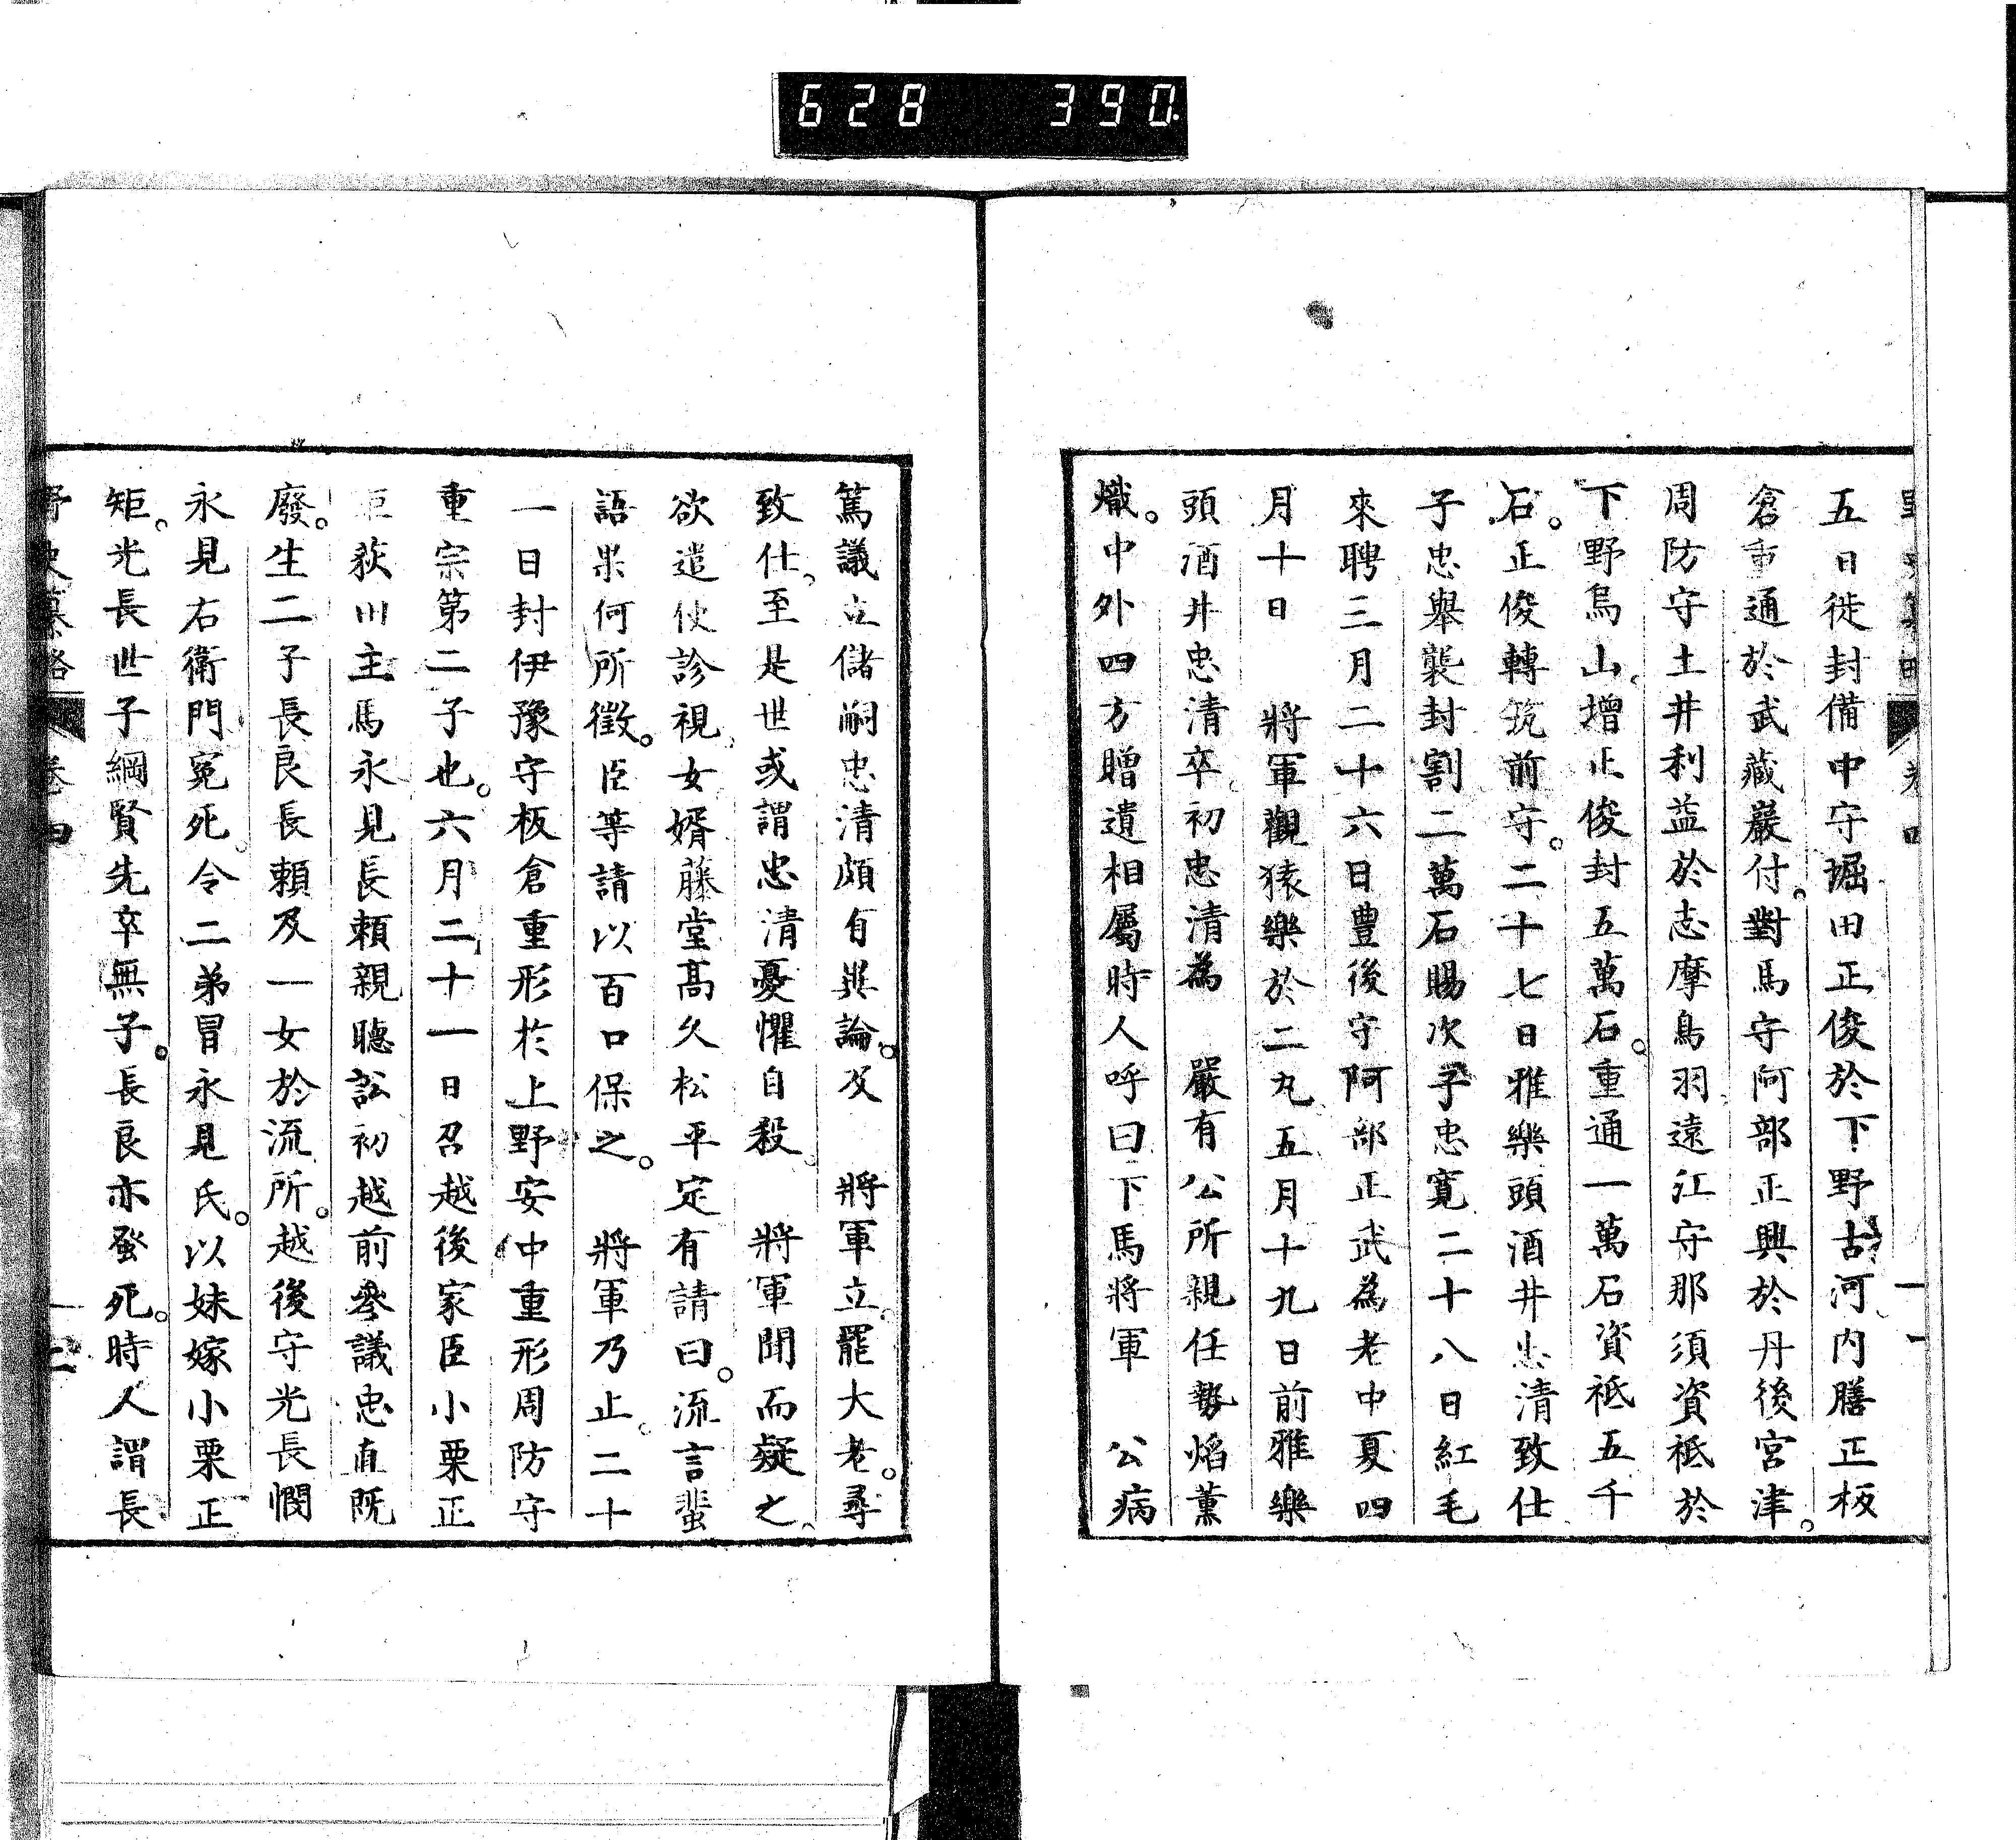 628 390
五日徙封備中守堀田正俊於下野古河内膳正板
倉重通於武藏巖付。對馬守阿部正興於丹後宮津。
周防守土井利益於志摩鳥羽遠江守那須資祗於
下野烏山增正俊封五萬石。重通一萬石資祗五千
石。正俊轉筑前守。二十七日雅樂頭酒井忠清致仕
子忠舉襲封割二萬石賜次子忠寬二十八日紅毛
來聘三月二十六日豊後守阿部正武為老中夏四
月十日 將軍觀猿樂於二丸五月十九日前雅樂
頭酒井忠清卒初忠清為 嚴有公所親任勢焰薰
熾。中外四方贈遺相屬時人呼曰下馬將軍 公病
篤議立儲嗣忠清頗有異論。及 將軍立罷大老。尋
致仕、至是世或謂忠清憂懼自殺 將軍聞而疑之、
欲遣使診視女婿藤堂高久松平定有請曰。流言蜚
語果何所徵。臣等請以百口保之。 將軍乃止。二十
一日封伊豫守板倉重形於上野安中重形周防守
重宗第二子也。六月二十一日召越後家臣小栗正
矩荻田主馬永見長頼親聽訟初越前參議忠直既
廢。生二子長良長頼及一女於流所。越後守光長憫
永見右衛門冤死令二弟冒永見氏。以妹嫁小栗正
矩。光長世子綱賢先卒無子。長良亦蚤死。時人謂長
野史纂略 卷四